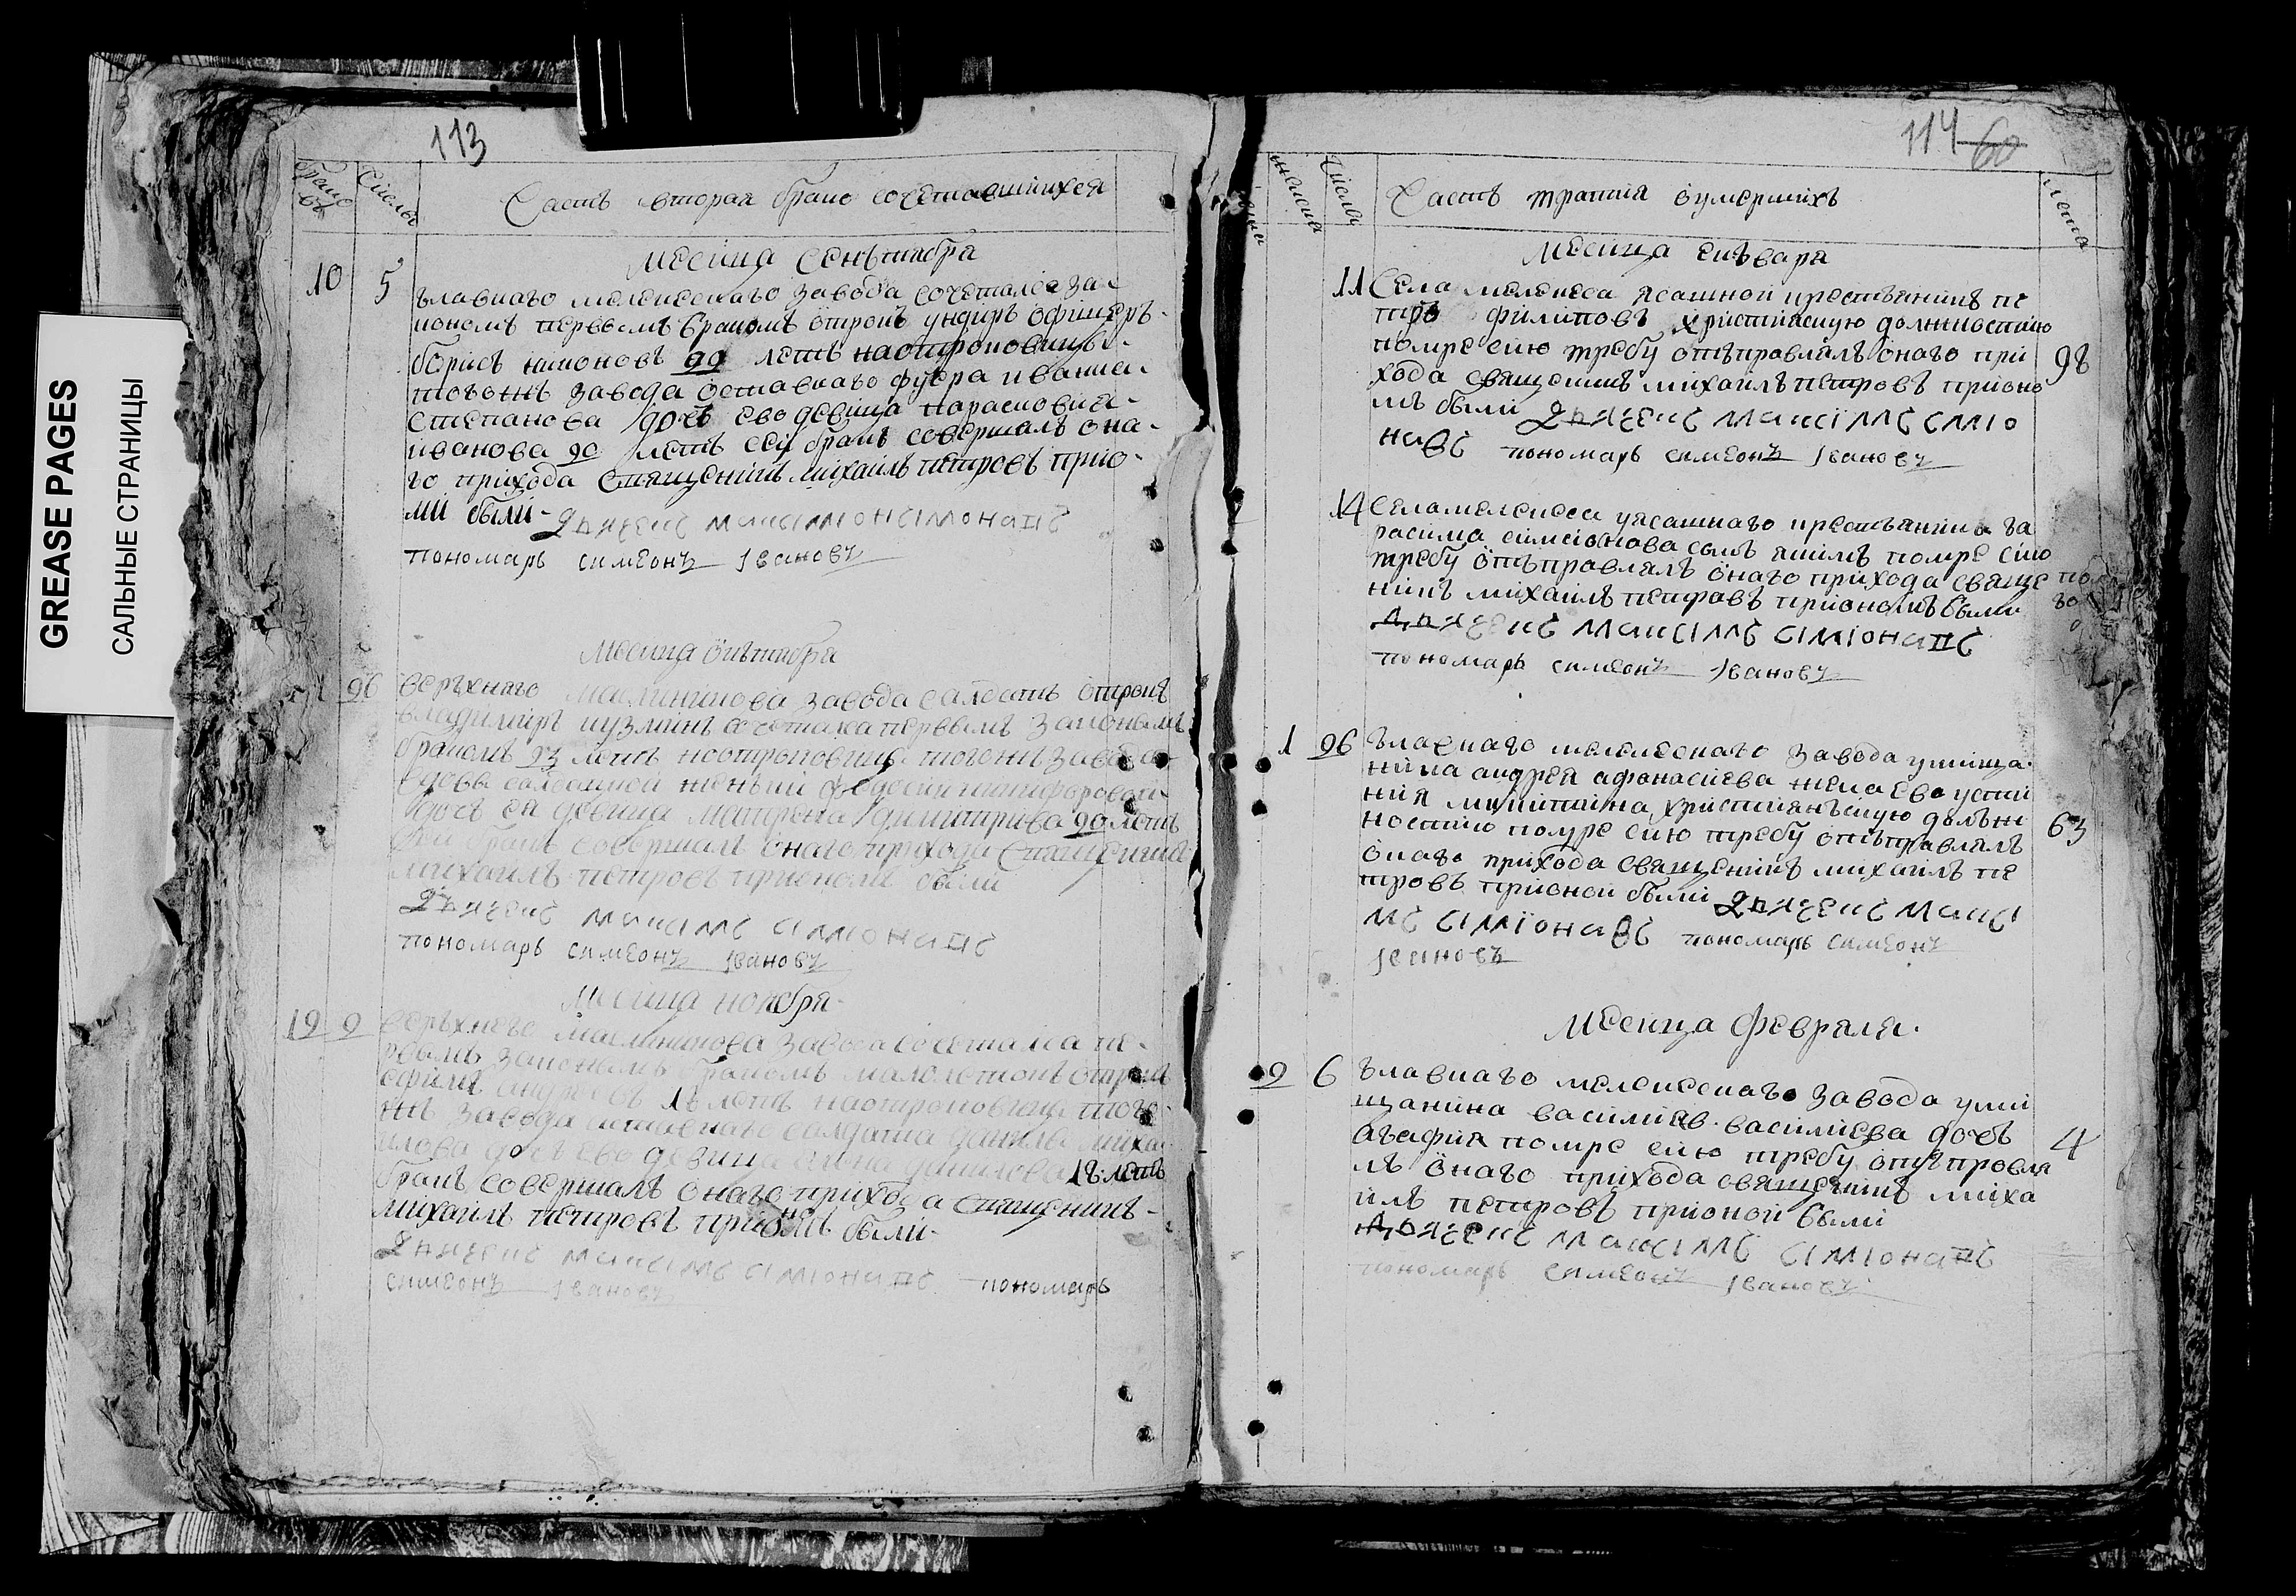 GREASE PAGES
САЛЬНЫЕ СТРАНИЦЫ
113
брако въ
Числы
Часть вторая брако сочетавшихся
Месица Сенътебра
10 5
ълавнаго мелекескаго завода сочеталса за-
кономъ первымъ бракомъ отрокъ ундиръ офицеръ-
борисъ никоновъ 22 летъ наотроковицы-
тогожъ завода оставнаго фуера ивана-
степанова дочь ево девица парасковия-
иванова 20 летъ сей бракъ совершалъ она-
го прихода священикъ михаилъ петровъ прио-
ми были- Дьячекъ максимо симонавъ
пономарь симеонъ Ивановъ
Месица октебра
26 верхнаго маслинкова завода салдатъ отрокъ
владимиръ кузминъ сочетаха первымъ законымъ
бракомъ 23 летъ наотроковице тогожъ завода
вдовы салдацкой женкы федосии никифоровой
дочь ея девица матрона димитрива 20 летъ
сей бракъ совершалъ онаго прихода священикъ
михаилъ петровъ приономи были
Дьячекъ максимъ симионавъ
пономарь симеонъ Ивановъ
Месица ноебря-
12 9 верхнего маслинкова завода сочеталса пе-
рвымъ законымъ бракомъ малолетокъ отрокъ
ефимъ андреевъ летъ наотроковице того-
жъ завода оставнаго салдата данила миха-
илова дочь ево девица данилова летъ
бракъ совершалъ онаго прихода священикъ-
михаилъ петровъ прионмъ были-
Дьячекъ максимъ симионавъ пономарь
симеонъ Ивановъ
114 60
Числы
Часть трапия оумершихъ
лета
Месица енъваря
11 Села мелекеса ясашной крестьянинъ пе
тръ филиповъ христиаскую должностию
помре сию требу отъправлялъ онаго при
хода священикъ михаилъ петровъ прионо
мъ были Дьячекъ максимъ симо
навъ пономарь симеонъ Ивановъ
14 Села мелекеса уясашнаго крестьянина га
расима симионова сынъ якимъ помре сию
требу отъправлялъ онаго прихода свяще
никъ михаилъ петровъ приономъ были
Дьячекъ максимъ симионавъ
пономарь симеонъ Ивановъ
1 26 ълавнаго мелекескаго завода умища
нина андрея афонасиева жена ево усти
ния микитина християнъскую должи
ностию помре сию требу отъправлялъ 63
онаго прихода священикъ михаилъ пе
тровъ прионой были Дьячекъ макси
мъ симионавъ пономарь симеонъ
Ивановъ
Месица февраля.
2 6 ълавнаго мелекескаго завода уми
щанина василиев василиева дочь 4
агафия помре сию требу отъправля
лъ онаго прихода священикъ миха
илъ петровъ прионой были
Дьячекъ максимъ симионавъ
пономарь симеонъ Ивановъ